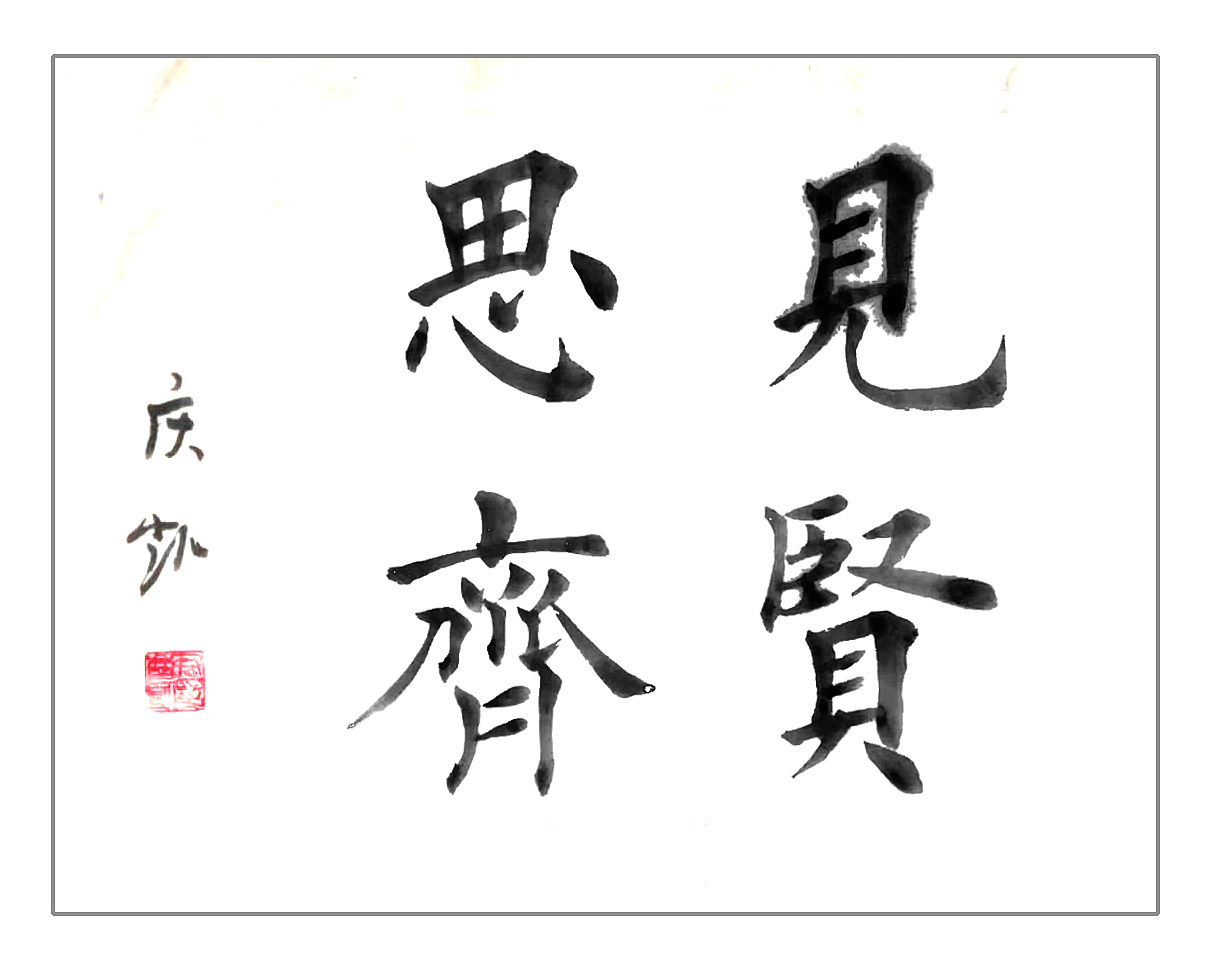 見賢
思齊
庆凯